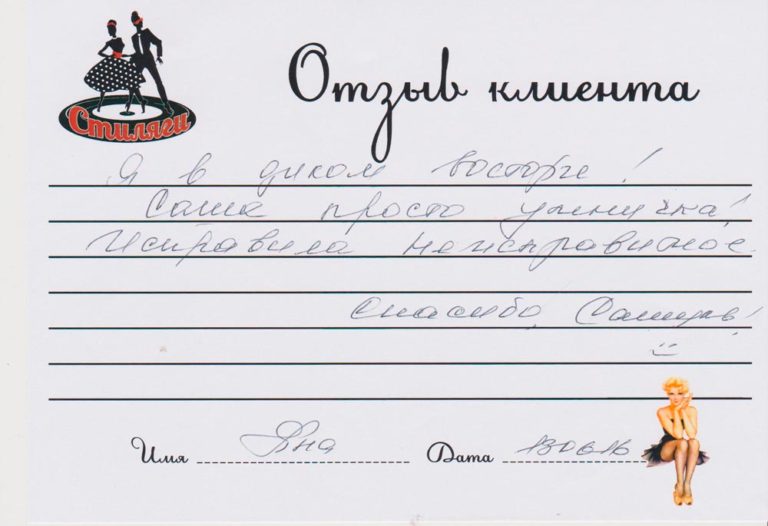 Стиляги
Отзыв клиента
Я в диком восторге!
Саша просто умничка!
Исправила неисправимое
Спасибо,
Имя Яна Дата 130616